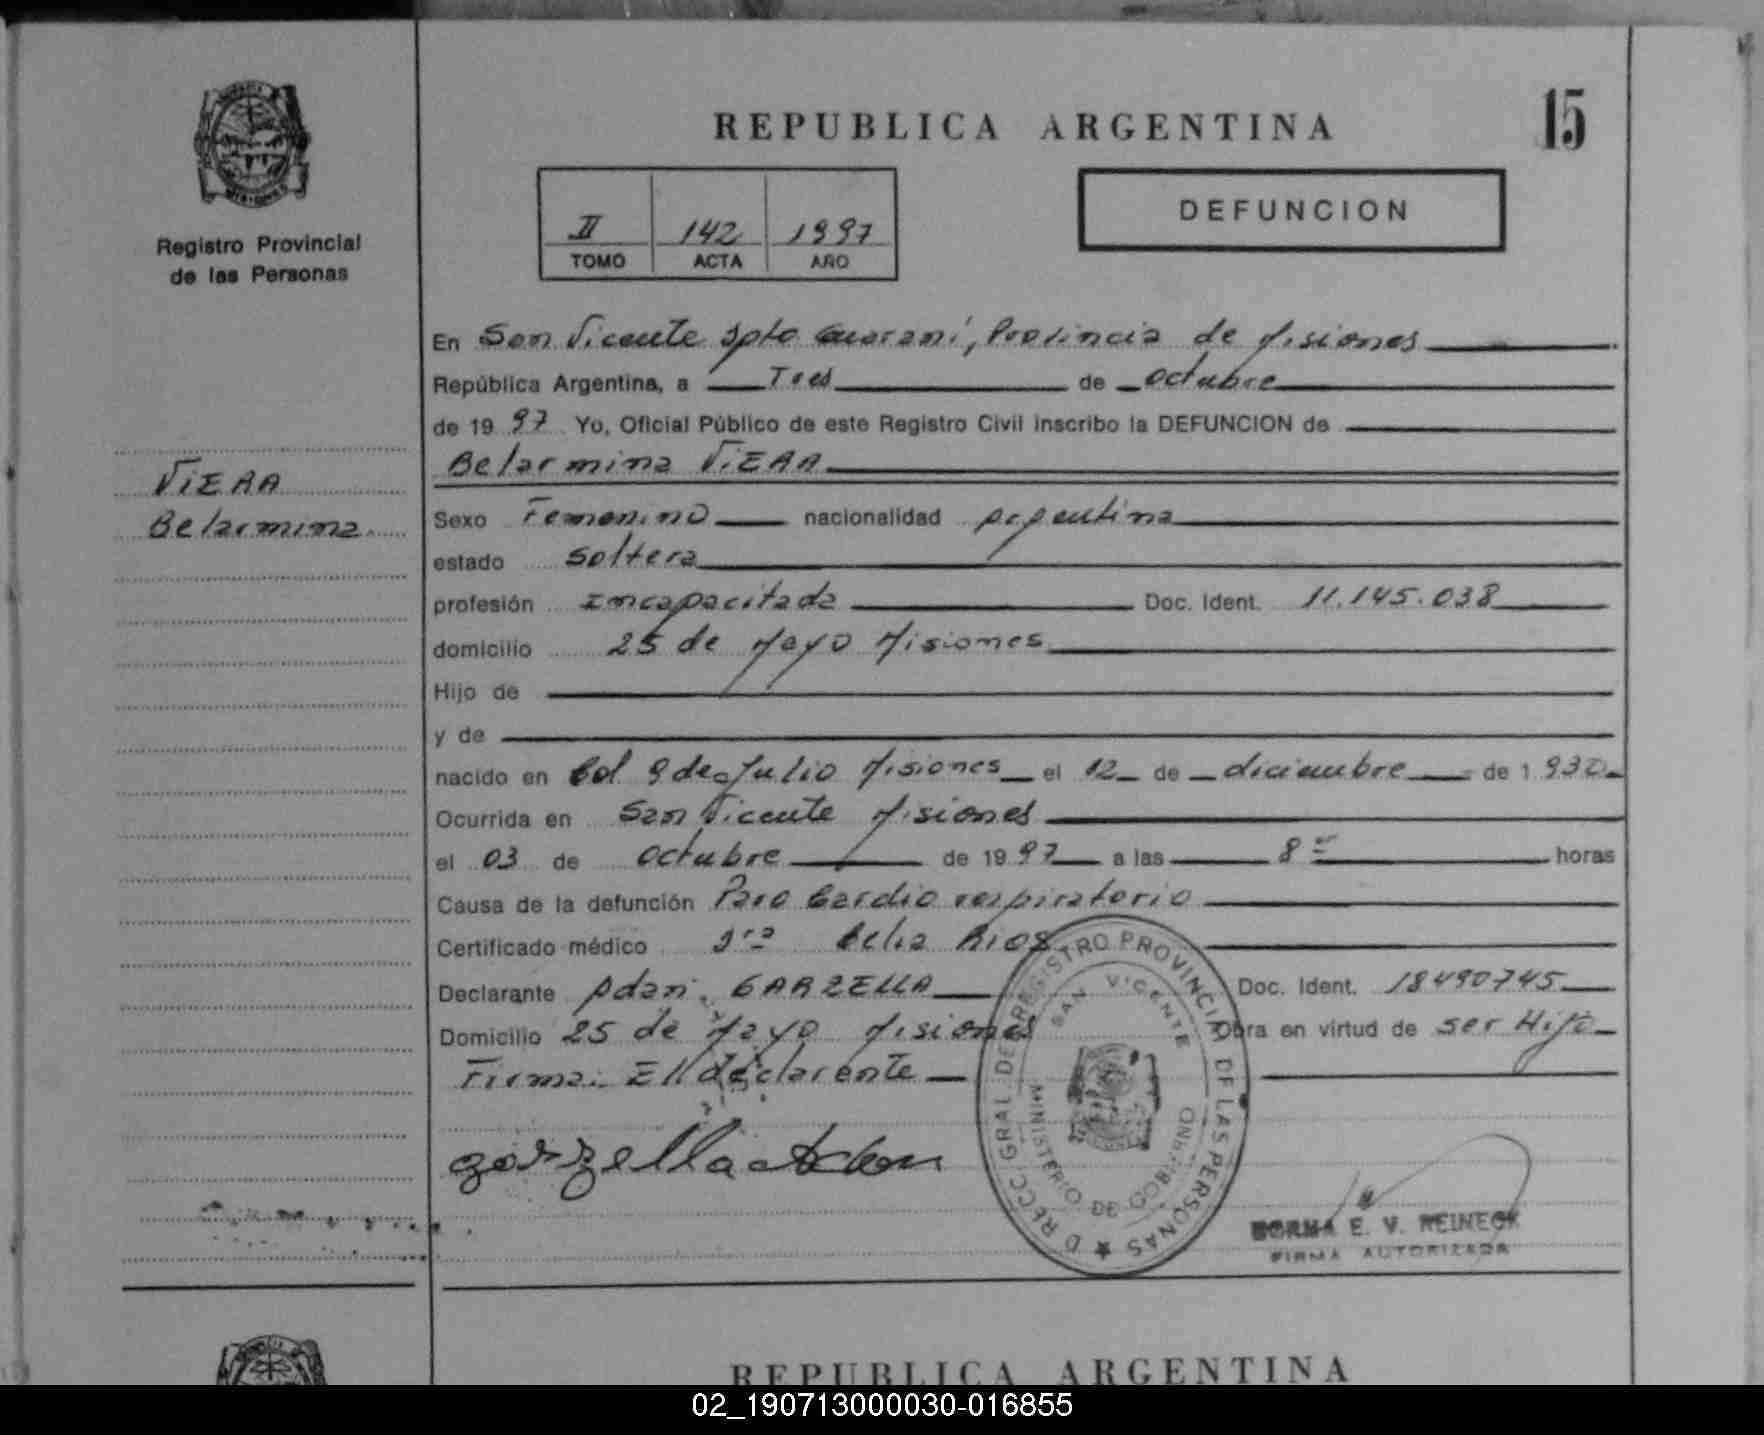 15
REPUBLICA ARGENTINA
Registro Provincial
de las Personas
II 142 1997
TOMO ACTA AÑO
DEFUNCION
VIERA
Belarmina
En San Vicente Dpto Guaraní, Provincia de Misiones
República Argentina, a Tres de octubre
de 1997 Yo, Oficial Público de este Registro Civil inscribo la DEFUNCION de
Belarmina ViERA
Sexo Femenino nacionalidad Argentina
estado Soltera
profesión Incapacitada Doc. Ident. 11.145.038
domicilio 25 de Mayo Misiones
Hijo de
y de
nacido en Col 9 de Julio Misiones el 12 de diciembre de 1930
Ocurrida en San Vicente Misiones
el 03 de octubre de 1997 a las 8 horas
Causa de la defunción Paro Cardio respiratorio
Certificado médico Dra Celia Rios
Declarante Adan. GARZELLA Doc. Ident. 18490745
Domicilio 25 de Mayo Misiones Obra en virtud de ser Hijo
Firma: El declarante
garzella Adan
DRECC GRAL DE REGISTRO PROVINCIAL DE LAS PERSONAS
SAN VICENTE
MINISTERIO DE GOBIERNO
NORMA E. V. REINECK
FIRMA AUTORIZADA
REPUBLICA ARGENTINA
02_190713000030-016855